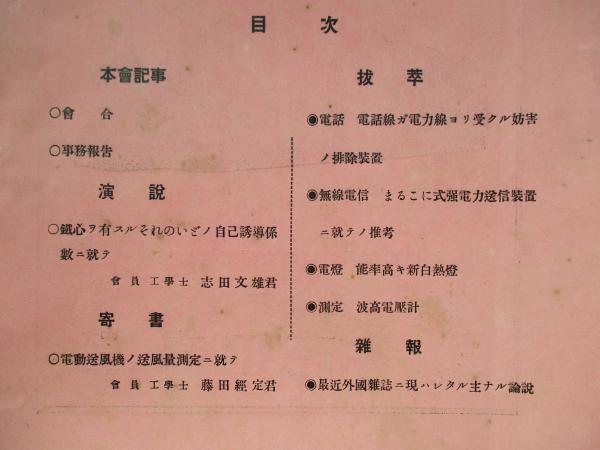 目次
本會記事
○會合
○事務報告
演說
○鐵心ヲ有スルそれのいどノ自己誘導係
數ニ就テ
會員 工學士 志田文雄君
寄書
○電動送風機ノ送風量測定ニ就テ
會員 工學士 藤田經定君
拔萃
◉電話 電話線ガ電力線ヨリ受クル妨害
ノ排除裝置
◉無線電信 まるこに式强電力送信裝置
ニ就テノ推考
◉電燈 能率高キ新白熱燈
◉測定 波高電壓計
雜報
◉最近外國雜誌ニ現ハレタル主ナル論說